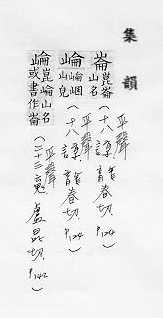 集韻
崙 崑崙山名(平聲十八諄龍春切P.124)
崘 崘峮山皃(平聲十八諄龍春切P.124)
崘 崐崘山名或書作崙(平聲二十三魂盧昆切P.142)